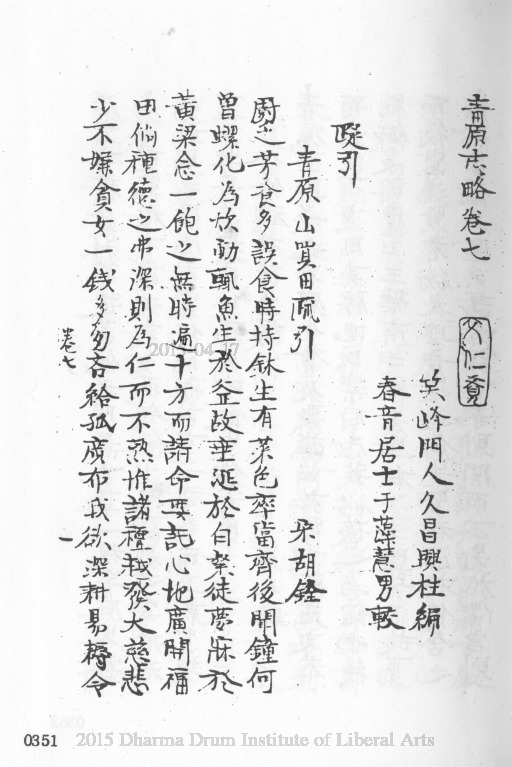 青原志略卷七
文仁賣
笑峰門人久昌興柱編
春音居士于藻慧男較
疏引
青原山買田疏引
宋胡銓
廚乏芳食多誤食時持鉢生有菜色率當齋後聞鐘何
曾蠏化為炊動輒魚生於釜故垂涎於白粲徒夢寐於
黃梁念一飽之無時遍十方而請命要託心地廣開福
田倘種德之弗深則為仁而不熟惟諸檀越發大慈悲
少不嫌貧女一錢多勿吝給孤廣布我欲深耕易耨令
卷七
一
2015-04-17
0351
2015 Dharma Drum Institute of Liberal Arts